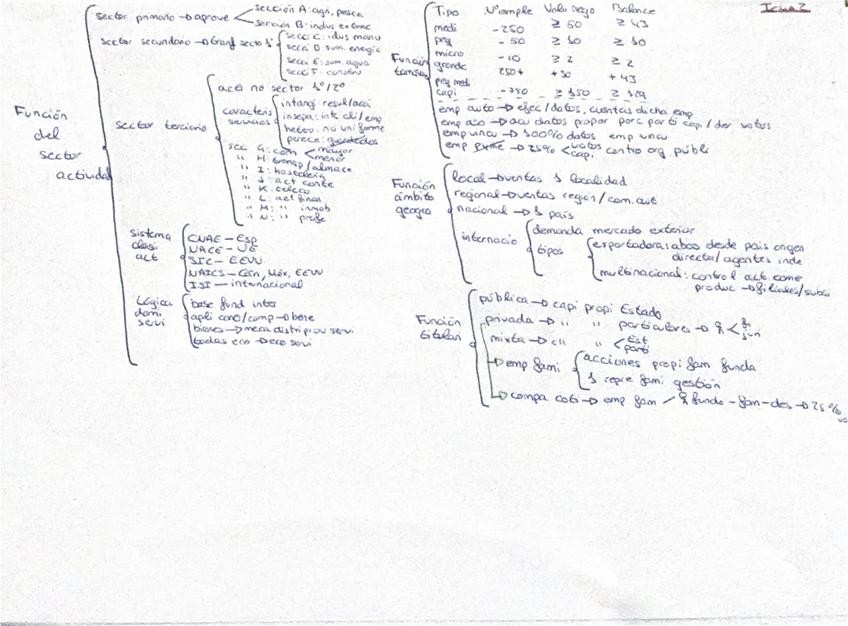 Tema 2
Función del sector actividad
sector primario → aprove
sección A: agri, pesca
sección B: indus extrac
sector secundario → transf secto 1º
secc C: idus manu
secci D sum. energia
secci E: sum. agua
secci F: constru
sector terciario
acti no sector 1º/2º
caracteris servicios
intangi result/acci
insepa: inte cli/emp
hetero: no uniforme
perece: guardados
sec G: com mayor menor
" H: transp/almace
" I: hosteleria
" J: act
" K:
" L: act finan
" M: " inmob
" N: " profe
sistema clasi act
CNAE - Esp
NACE - UE
SIC - EEUU
NAICS - Can, Méx, EEUU
ISI - internacional
Lógica domi servi
base fund inter
apli cono/comp → bene
bienes → meca distri servi
todas eco → eco servi
Función tamaño
Tipo Nº emple Volu nego Balance
medi -250 ≥ 50 ≥ 43
peq - 50 ≥ 10 ≥ 10
micro -10 ≥ 2 ≥ 2
grande 250+ + 50 + 43
peq medi capi - 750 ≥ 150 ≥ 129
emp auto → ejec/datos, cuentas dicha emp
emp aso → acu datos propor porc parti cap/der votos
emp vincu → 100% datos emp vincu
emp → 25% votos capi contro org públi
Función ámbito geogra
local → ventas 1 localidad
regional → ventas region/com. aut
nacional → 1 país
internacio
demanda mercado exterior
tipos
exportadora: abas desde pais origen
directa/agentes inde
multinacional: control act. come
produc → filiales/subsi
Función titulari
pública → capi propi Estado
privada → " " particulares →
mixta → " " Est parti
→ emp fami
acciones propi fam funda
1 repre fami gestión
→ compa coti → emp fam / funda - fam - des → 25%